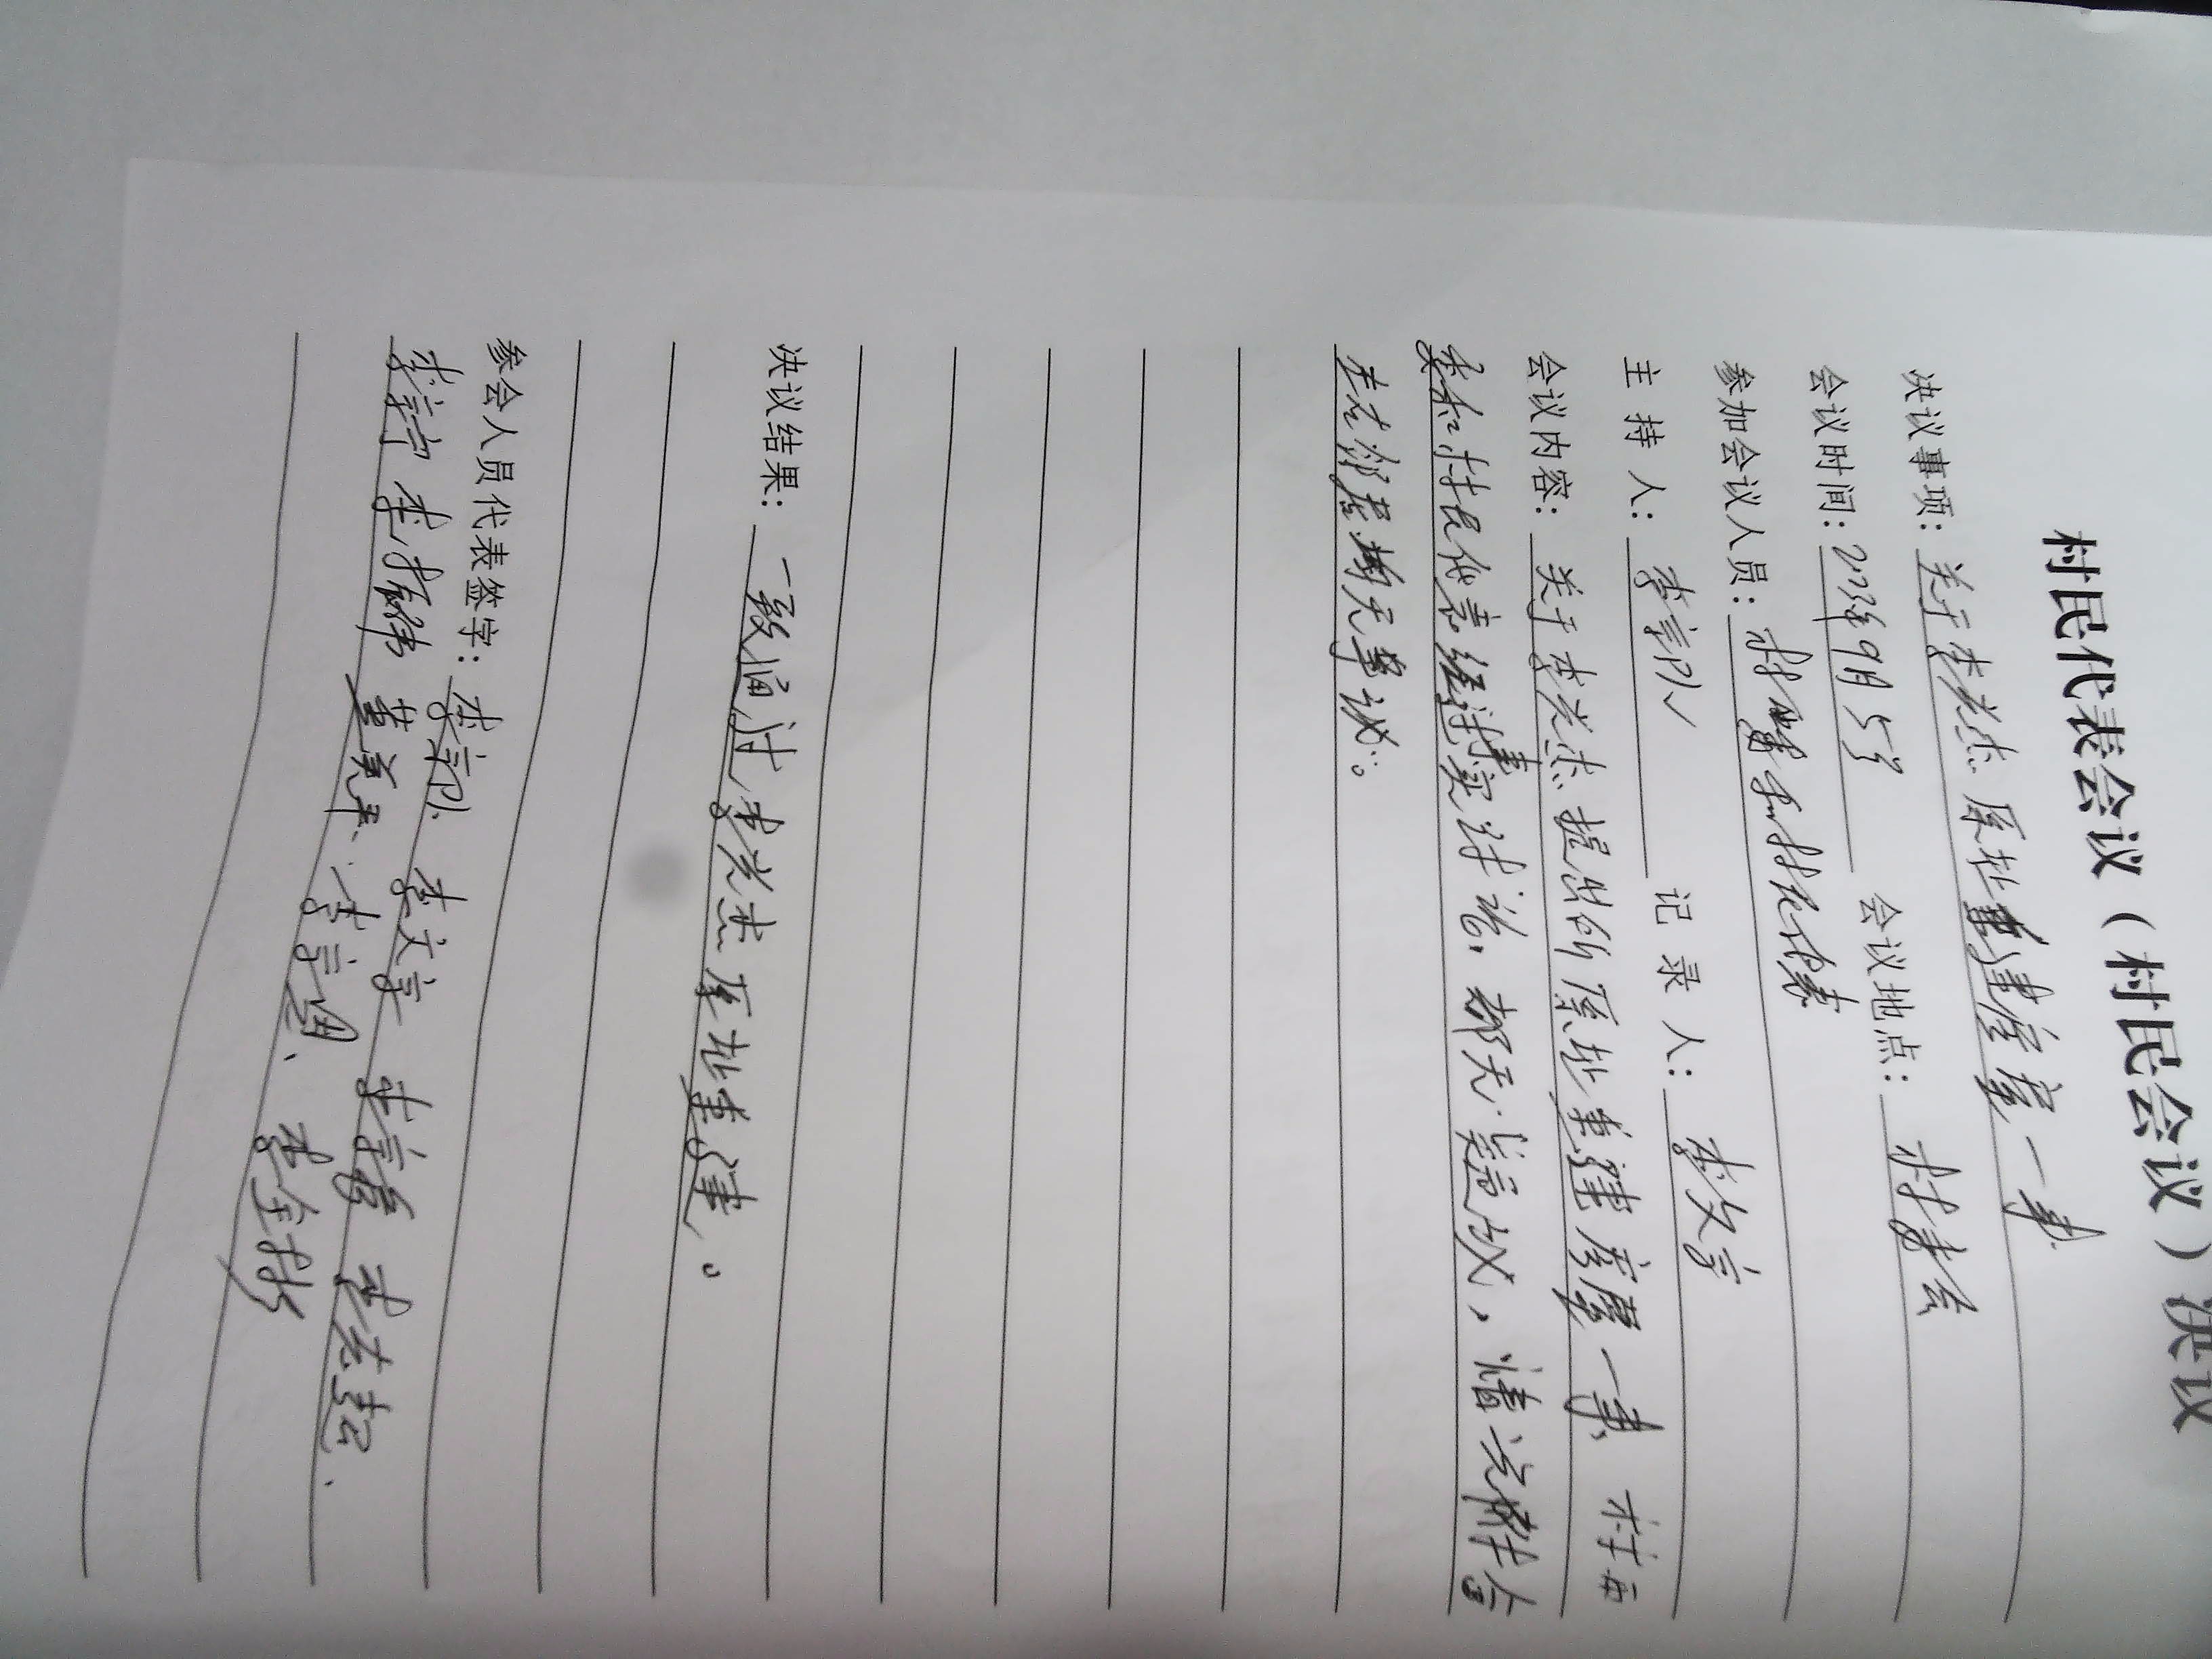 村民代表会议（村民会议）决议
决议事项：关于李兴杰原址重建房屋一事
会议时间：2023年9月5号 会议地点：村委会
参加会议人员：村两委和村民代表
主 持 人：李宗队 记 录 人：李文字
会议内容：关于李兴杰提出的原址重建房屋一事、村两
委和村民代表经过事实讨论，都无疑议，情况附合
左右邻居均无争议。
决议结果：一致通过李兴杰原址重建。
参会人员代表签字：李宗队 李文字 李宗 李志起、
李宗宁 李振伟 董美平 李宗恩、李全彬